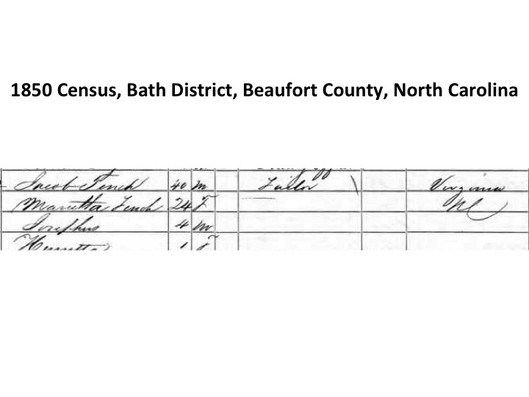 1850 Census, Bath District, Beaufort County, North Carolina
Jacob Finch 40 m Tailor Virginia
Marietta Finch 24 F NC
Josephus 4 m
Henrietta 1 F